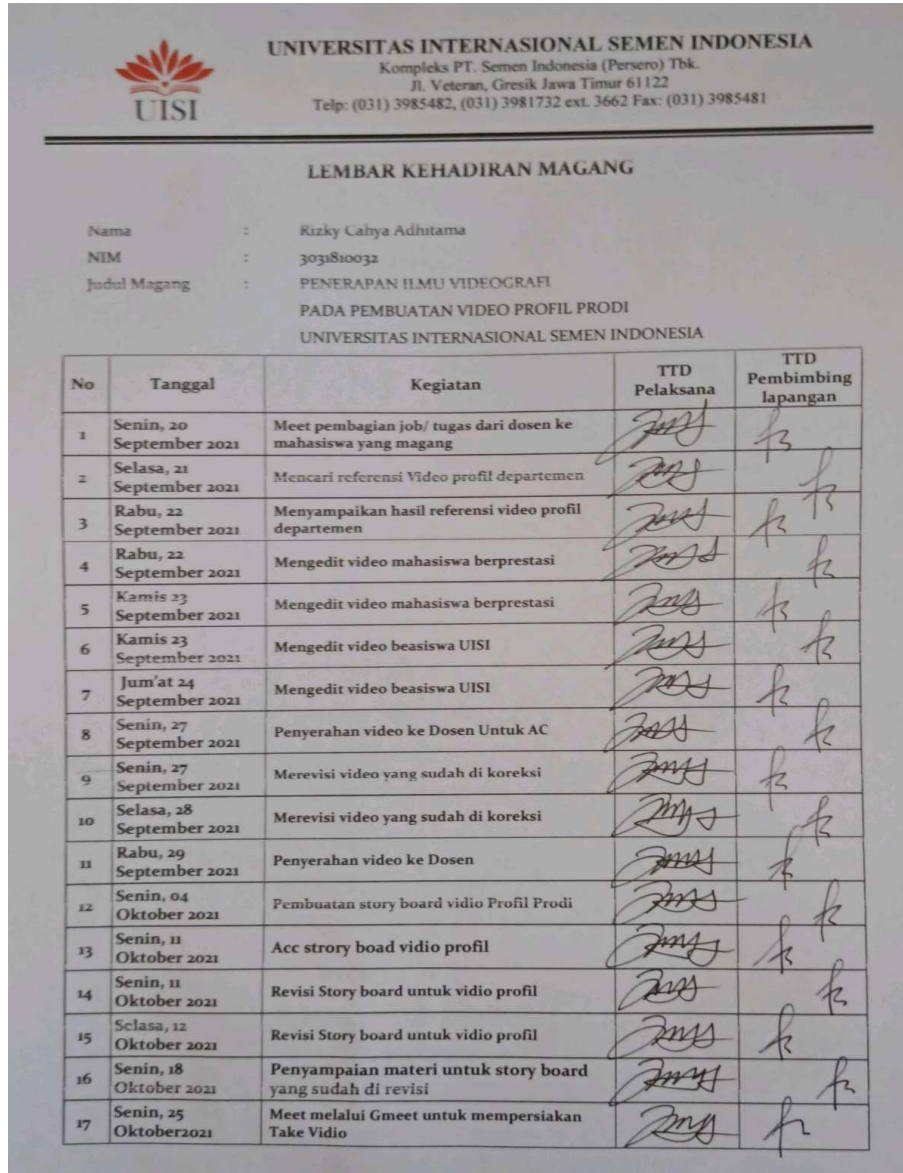 UISI
UNIVERSITAS INTERNASIONAL SEMEN INDONESIA
Kompleks PT. Semen Indonesia (Persero) Tbk.
Jl. Veteran, Gresik Jawa Timur 61122
Telp: (031) 3985482, (031) 3981732 ext. 3662 Fax: (031) 3985481
LEMBAR KEHADIRAN MAGANG
Nama : Rizky Cahya Adhitama
NIM : 3031810032
Judul Magang : PENERAPAN ILMU VIDEOGRAFI
PADA PEMBUATAN VIDEO PROFIL PRODI
UNIVERSITAS INTERNASIONAL SEMEN INDONESIA
No Tanggal Kegiatan TTD Pelaksana TTD Pembimbing lapangan
1 Senin, 20 September 2021 Meet pembagian job/ tugas dari dosen ke mahasiswa yang magang
2 Selasa, 21 September 2021 Mencari referensi Video profil departemen
3 Rabu, 22 September 2021 Menyampaikan hasil referensi video profil departemen
4 Rabu, 22 September 2021 Mengedit video mahasiswa berprestasi
5 Kamis 23 September 2021 Mengedit video mahasiswa berprestasi
6 Kamis 23 September 2021 Mengedit video beasiswa UISI
7 Jum'at 24 September 2021 Mengedit video beasiswa UISI
8 Senin, 27 September 2021 Penyerahan video ke Dosen Untuk AC
9 Senin, 27 September 2021 Merevisi video yang sudah di koreksi
10 Selasa, 28 September 2021 Merevisi video yang sudah di koreksi
11 Rabu, 29 September 2021 Penyerahan video ke Dosen
12 Senin, 04 Oktober 2021 Pembuatan story board vidio Profil Prodi
13 Senin, 11 Oktober 2021 Acc strory boad vidio profil
14 Senin, 11 Oktober 2021 Revisi Story board untuk vidio profil
15 Selasa, 12 Oktober 2021 Revisi Story board untuk vidio profil
16 Senin, 18 Oktober 2021 Penyampaian materi untuk story board yang sudah di revisi
17 Senin, 25 Oktober2021 Meet melalui Gmeet untuk mempersiakan Take Vidio